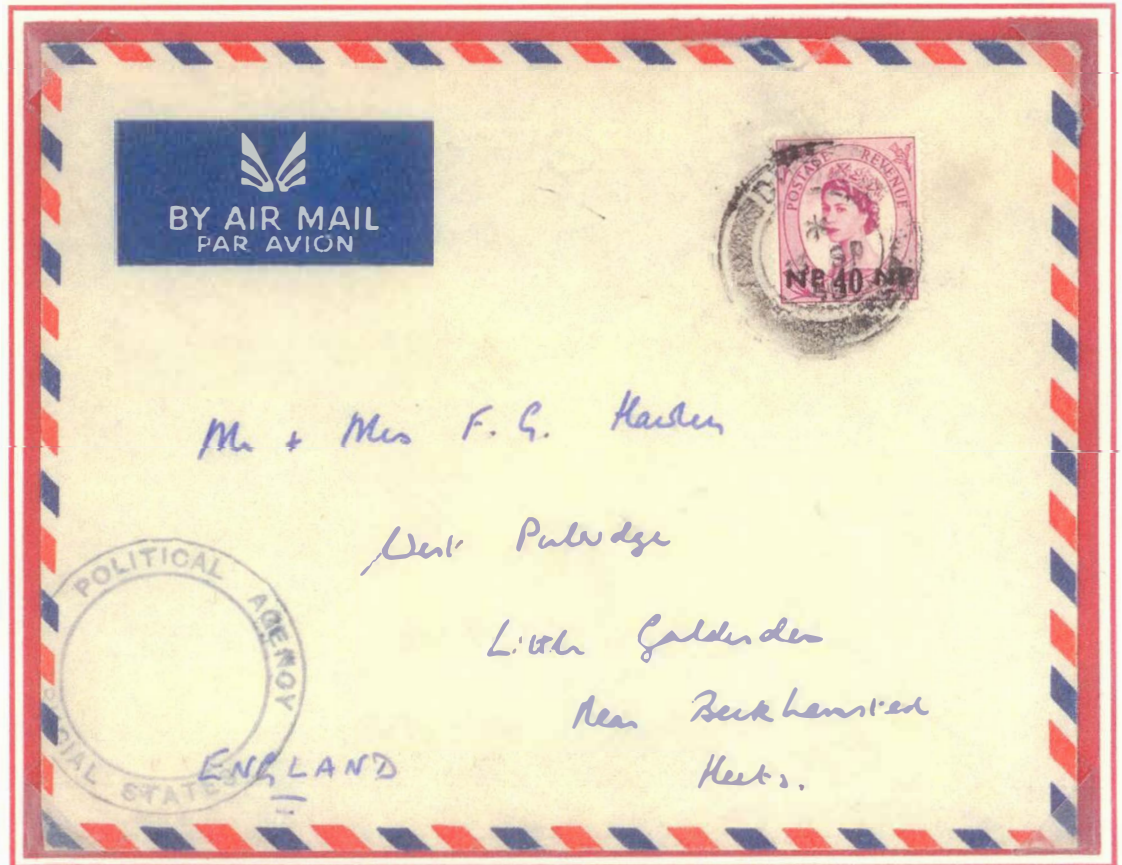 BY AIR MAIL
PAR AVION
POSTAGE REVENUE
NP 40 NP
Mr + Mrs F. G.
West
Little Gaddesden
Near Berkhamsted
Herts.
ENGLAND
POLITICAL AGENCY
STATES